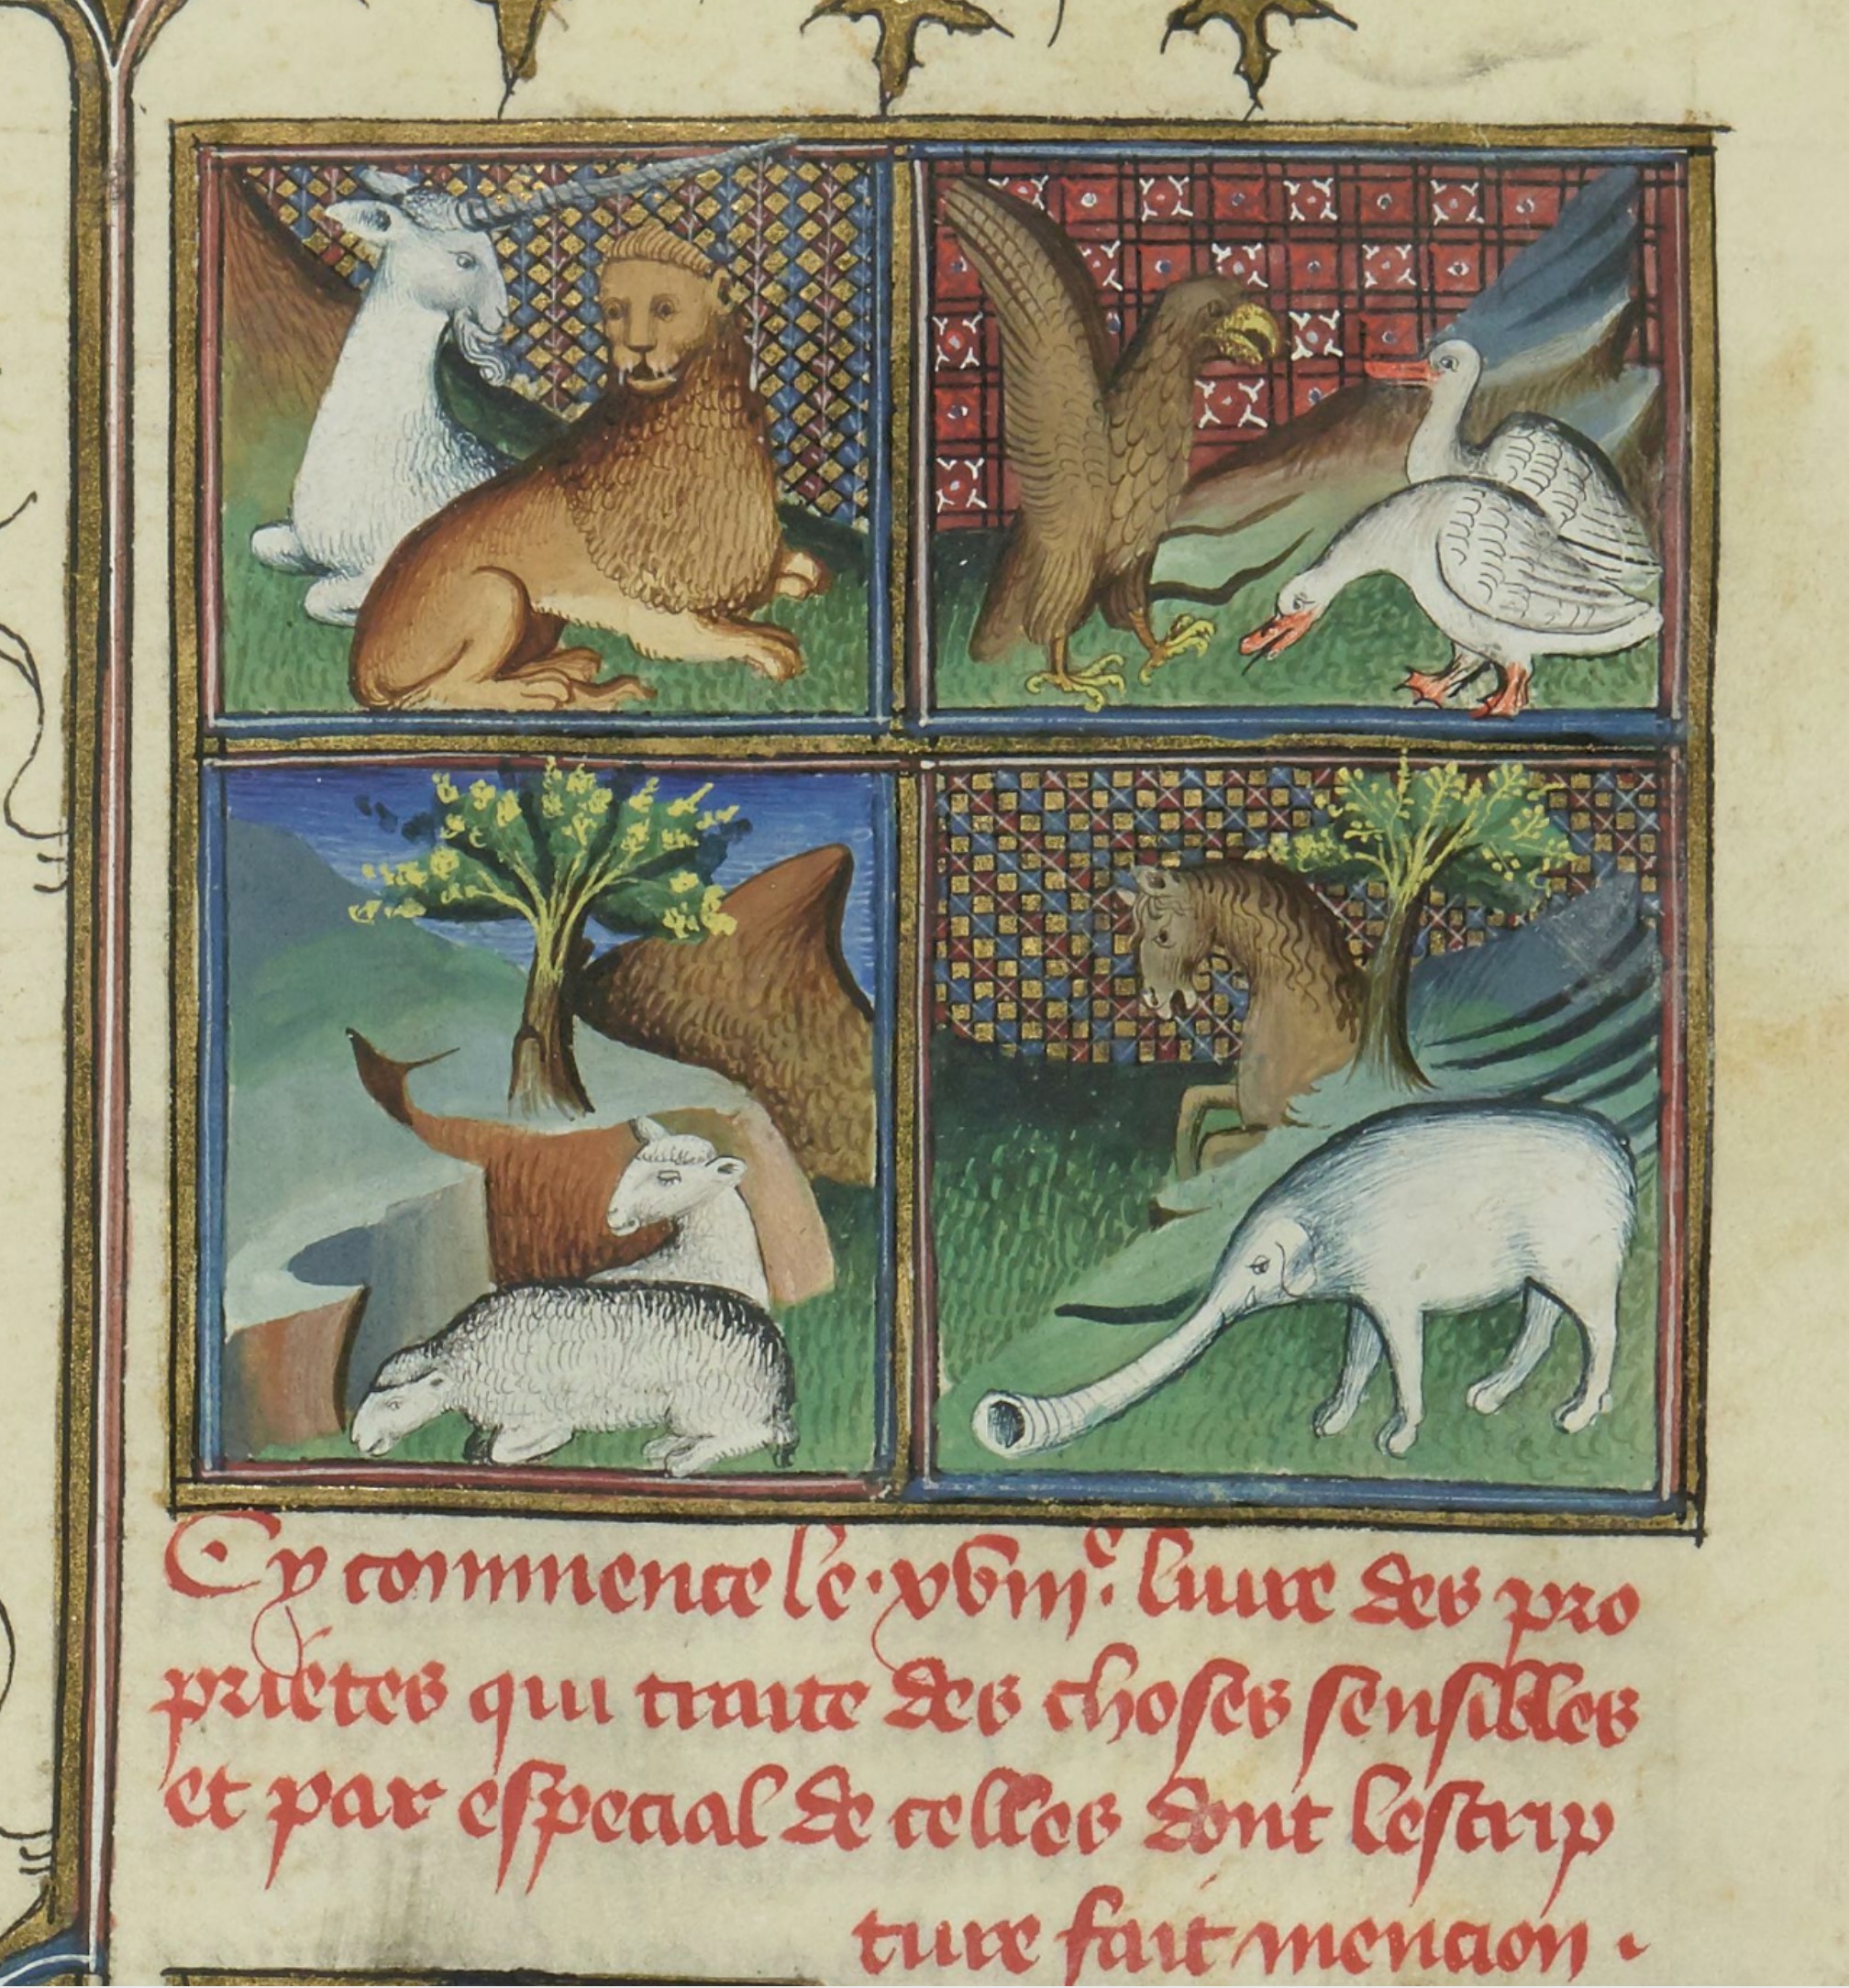 Cy commence le .xviii.e liure des pro
prietes qui traite des choses sensibles
et par especial de celles dont lescrip
ture fait mencion .